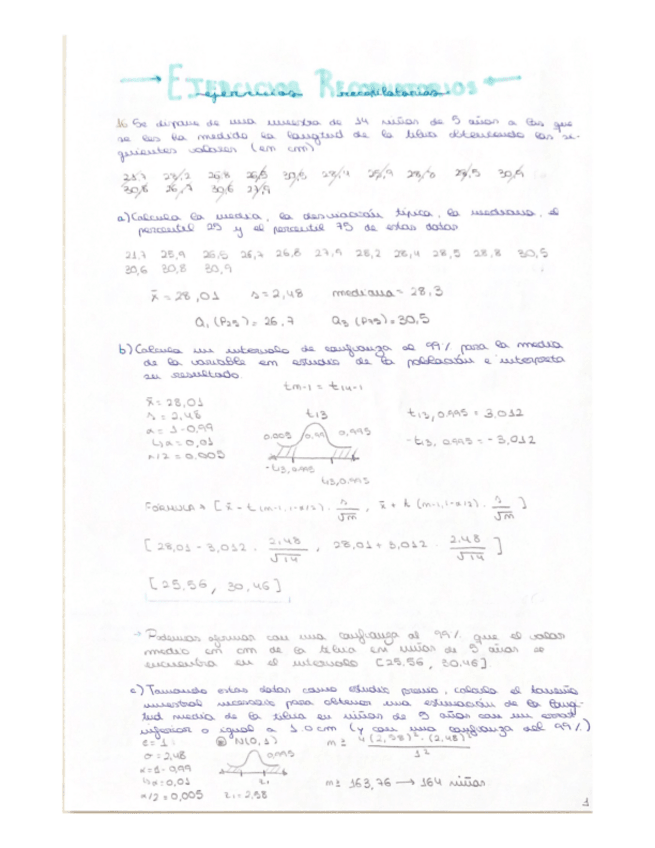 → EJERCICIOS RECOPILATORIOS ←
ejercicios recopilatorios
1. Se dispone de una muestra de 14 niñas de 9 años a las que
se les ha medido la longitud de la tibia obteniendo los si-
guientes valores (en cm)
30,8 26,7 30,6 27,9
a) Calcula la media, la desviación típica, la mediana, el
percentil 25 y el percentil 75 de estos datos
26,7 26,8 27,9 28,2 28,4 28,5 28,8 30,5
30,6 30,8 30,9
x̄ = 28,01 s = 2,48 mediana = 28,3
Q₁ (P25) = 26,7 Q₃ (P75) = 30,5
b) Calcula un intervalo de confianza al 99% para la media
de la variable en estudio de la población e interpreta
su resultado.
tn-1 = t14-1
x̄ = 28,01
s = 2,48 t13 t13, 0.995 = 3,012
α = 1-0,99
α = 0,01 0,005 0,99 0,995 -t13, 0.995 = -3,012
α/2 = 0,005
-t13,0.995
t13,0.995
FÓRMULA → [ x̄ - t (n-1, 1-α/2) · s/√n , x̄ + t (n-1, 1-α/2) · s/√n ]
[ 28,01 - 3,012 · 2,48/√14 , 28,01 + 3,012 · 2,48/√14 ]
[25,56, 30,46]
→ Podemos afirmar con una confianza al 99% que el valor
medio en cm de la tibia en niñas de 9 años se
encuentra en el intervalo [25,56, 30,46].
c) Tomando estos datos como estudio previo, calcula el tamaño
muestral necesario para obtener una estimación de la longi-
tud media de la tibia en niñas de 9 años con un error
inferior o igual a 1.0 cm (y con una confianza del 99%)
e = 1 N(0,1) n ≥ 4(2,58)² · (2,48)² / 1²
σ = 2,48 0,995
α = 1-0,99
α = 0,01 n ≥ 163,76 → 164 niñas
α/2 = 0,005 z₁ = 2,58
1